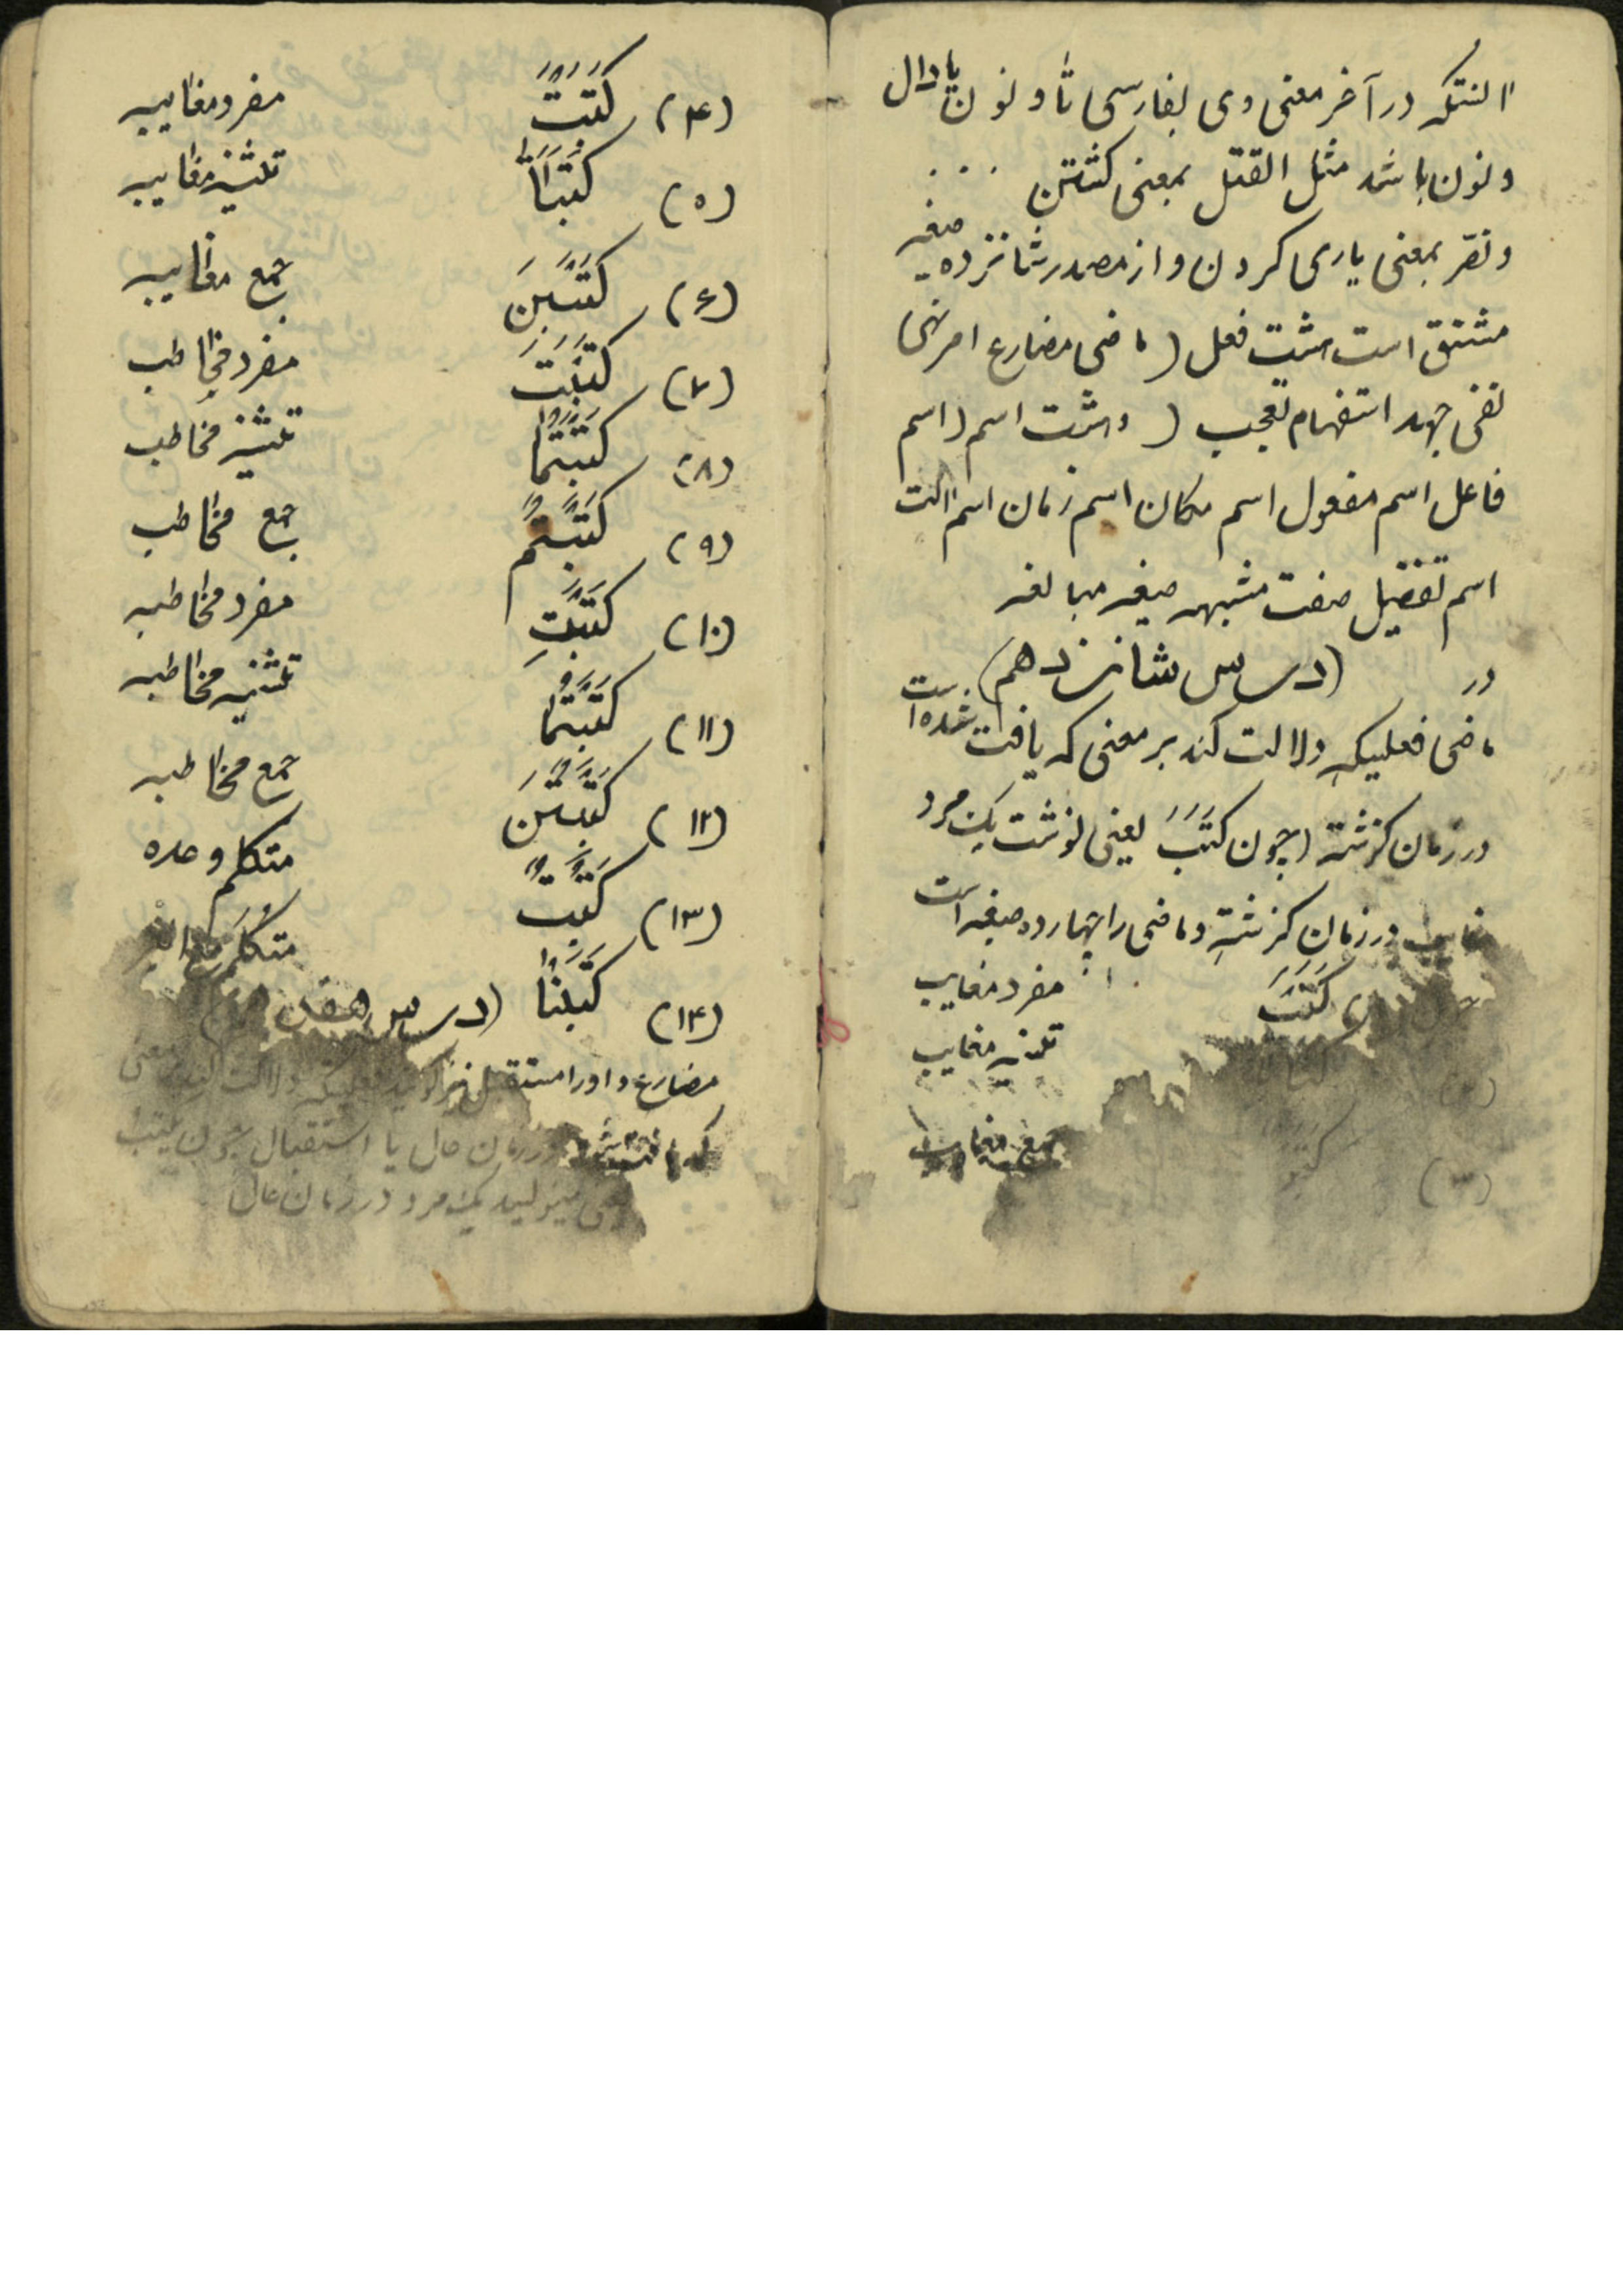 آنستکه در آخر معنی وی بفارسی تا و نون یا دال
و نون باشد مثل القتل بمعنی کشتن . . .
و نصر بمعنی یاری کردن و از مصدر شانزده صیغه
مشتق است هشت فعل ( ماضی مضارع امر نهی
نفی جهد استفهام تعجب ) و هشت اسم ( اسم
فاعل اسم مفعول اسم مکان اسم زمان اسم آلت
اسم تفضیل صفت مشبهه صیغه مبالغه
(درس شانزدهم) در
ماضی فعلیکه دلالت کند بر معنی که یافت شده است
در زمان گزشته چون کَتَبَ یعنی نوشت یک مرد
غایب در زمان گزشته و ماضی را چهارده صیغه است
کَتَبَ مفرد مغایب
(۲) تثنیه مغایب
(۳) جمع مغایب
(۴) کَتَبَتْ مفرد مغایبه
(۵) کَتَبَتَا تثنیه مغایبه
(۶) کَتَبْنَ جمع مغایبه
(۷) کَتَبْتَ مفرد مخاطب
(۸) کَتَبْتُمَا تثنیه مخاطب
(۹) کَتَبْتُمْ جمع مخاطب
(۱۰) کَتَبْتِ مفرد مخاطبه
(۱۱) کَتَبْتُمَا تثنیه مخاطبه
(۱۲) کَتَبْتُنَ جمع مخاطبه
(۱۳) کَتَبْتُ متکلم وحده
(۱۴) کَتَبْنَا متکلم مع الغیر
(درس هفدهم)
مضارع و او را مستقبل نیز گویند فعلیکه دلالت کند بر معنی
که در زمان حال یا استقبال چون یکتب
مینویسد یک مرد در زمان حال